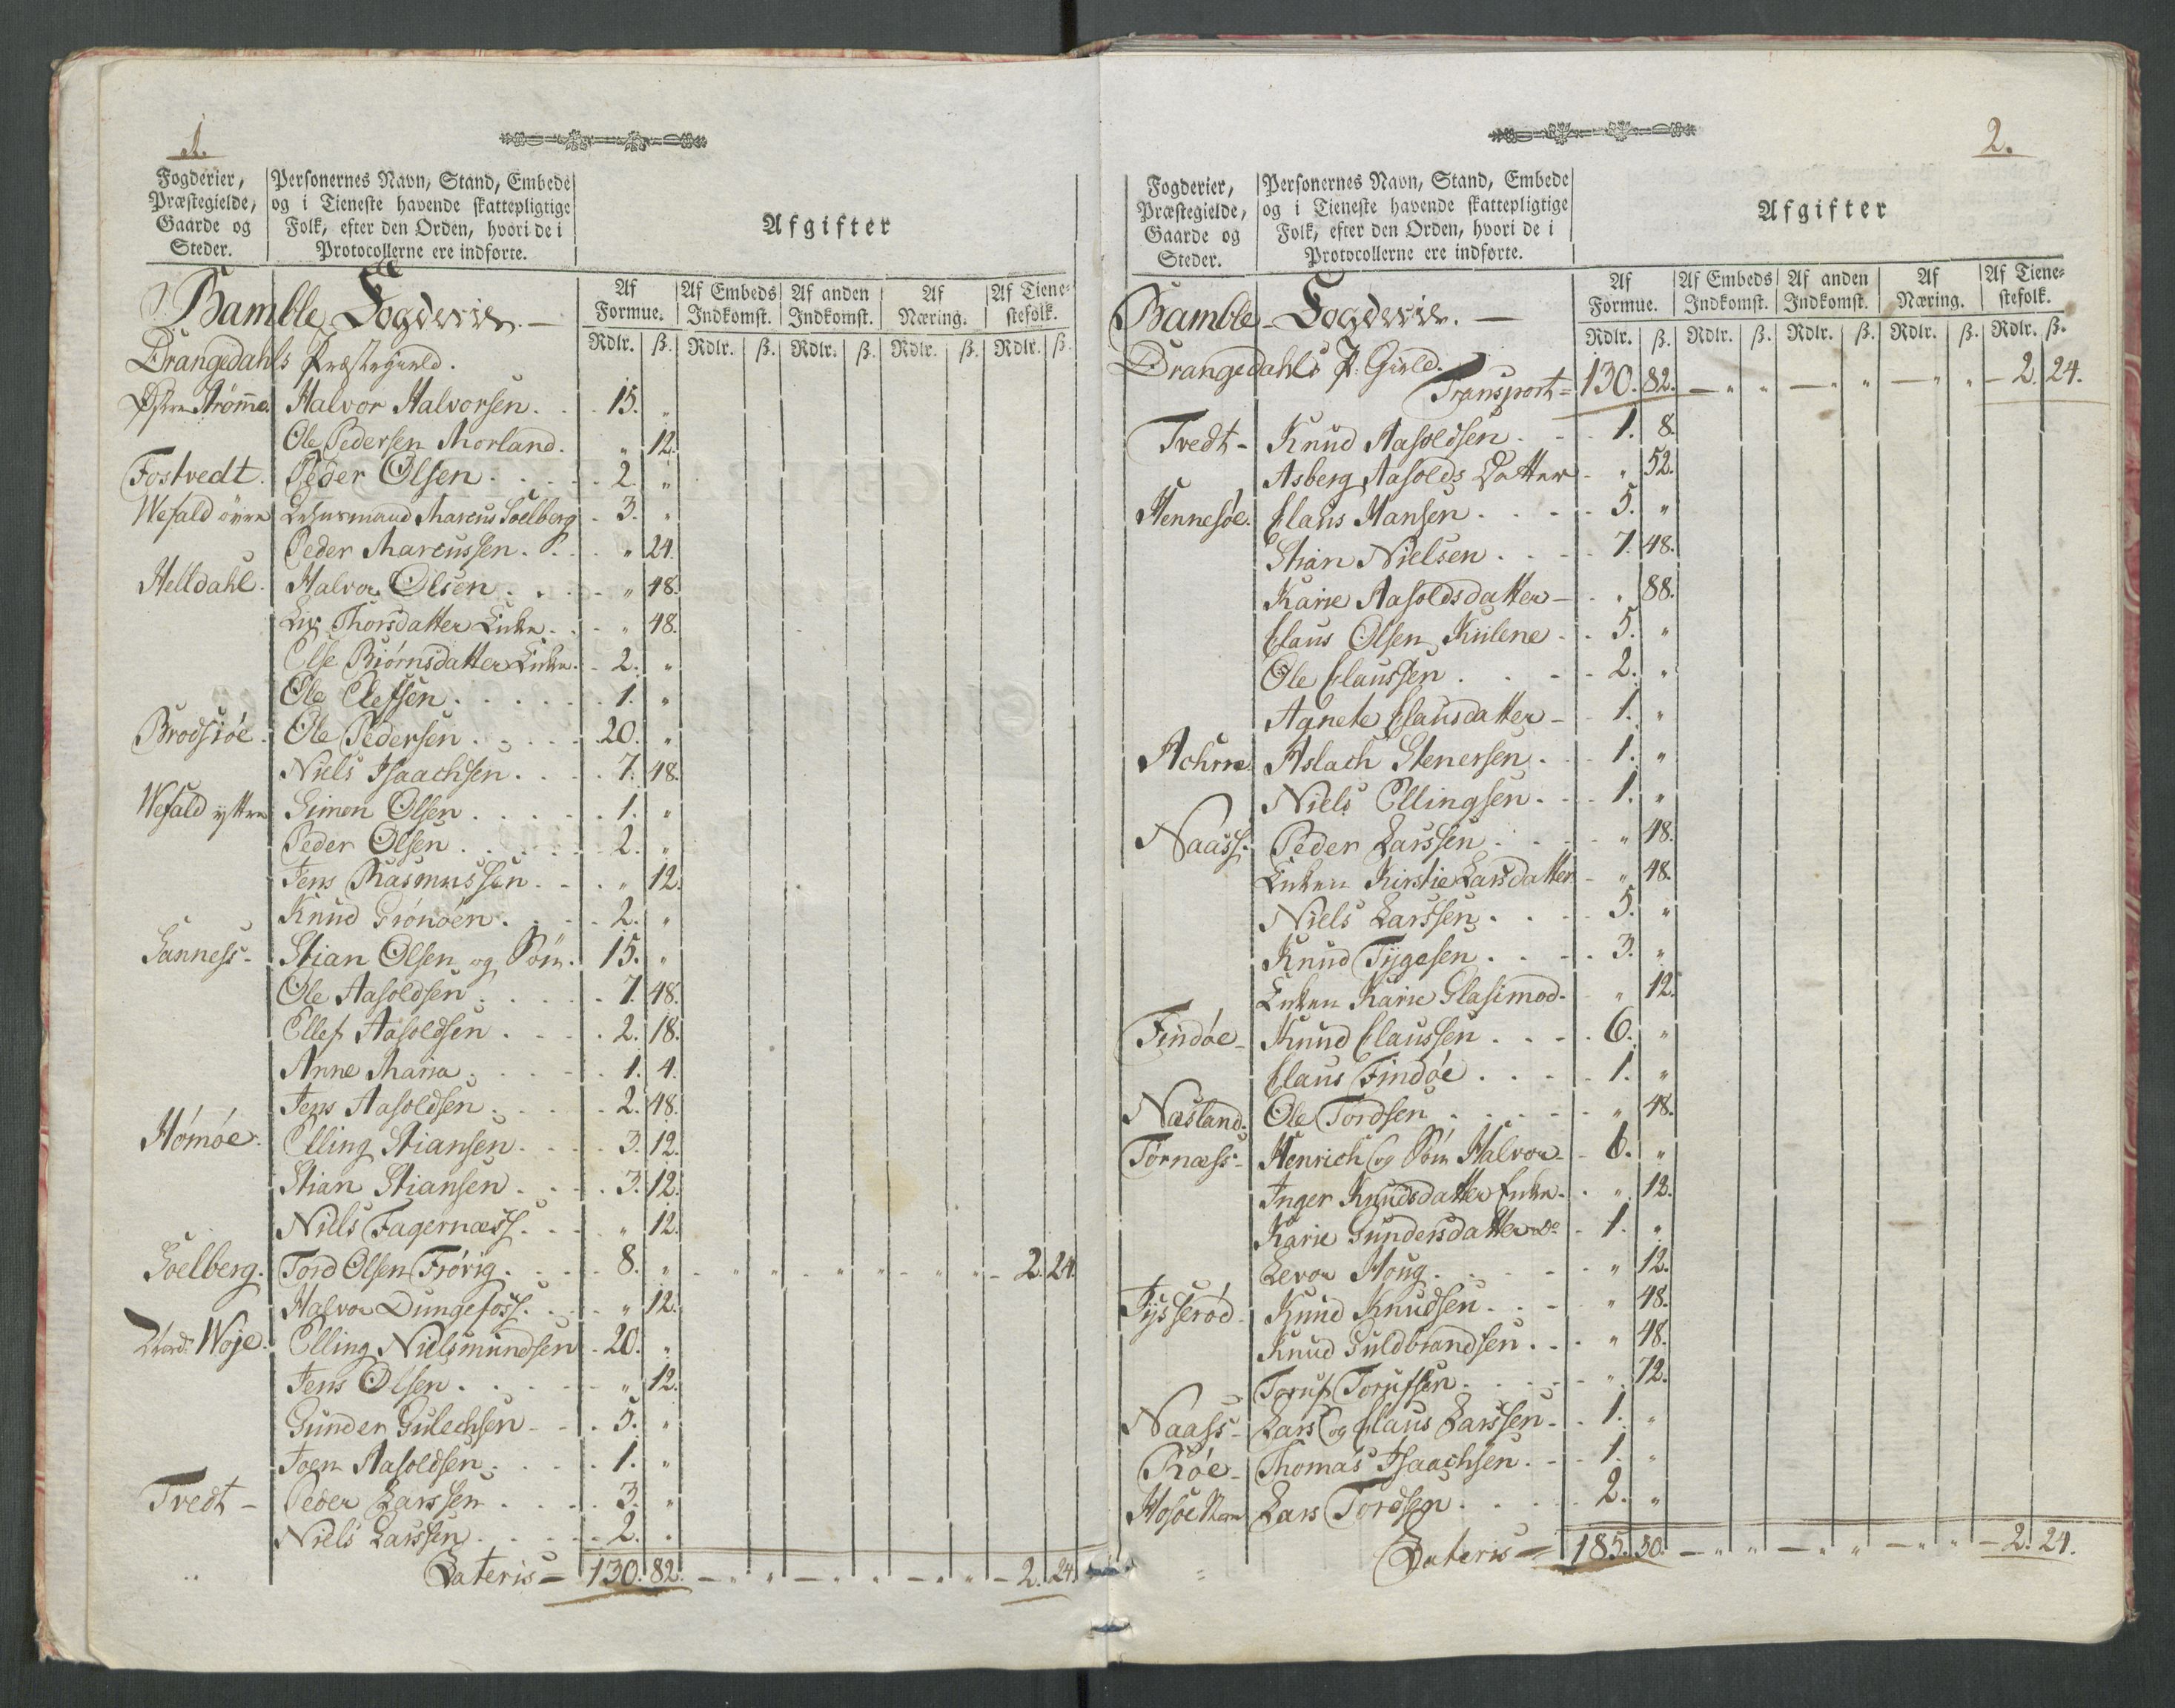 1.
Fogderier, Præstegielde, Gaarde og Steder.
Personernes Navn, Stand, Embede og i Tieneste havende skattepligtige Folk, efter den Orden, hvori de i Protocollerne ere indførte.
Afgifter
Af Formue. Af Embeds Indkomst. Af anden Indkomst. Af Næring. Af Tienestefolk.
Rdlr. ß. Rdlr. ß. Rdlr. ß. Rdlr. ß. Rdlr. ß.
Bamble Fogderie. —
Drangedahls Præstegield.
Østre Strømme. Halvor Halvorsen. 15. "
Ole Pedersen Morland. " 12.
Fostvedt. Peder Olsen. 2. "
Wefald øvre Marcus Soelberg 3. "
Peder Marcussen. " 24.
Helldahl. Halvor Olsen. " 48.
Liv Thorsdatter Enke. " 48.
Else Biørnsdatter Enke. 2. "
Ole Elefsen. 1. "
Brødsiøe. Ole Pedersen. 20. "
Niels Isaachsen. 7. 48.
Wefald yttre Simon Olsen. 1. "
Peder Olsen. 2. "
Jens Rasmussen. " 12.
Knud Grønøen. 2. "
Sanness- Stian Olsen og Søn. 15. "
Ole Aasoldsen. 7. 48.
Ellef Aasoldsen. 2. 18.
Anne Maria. 1. 4.
Jens Aasoldsen. 2. 48.
Hómóe. Elling Stiansen. 3. 12.
Stian Stiansen. 3. 12.
Niels Fagernæss. " 12.
Soelberg. Tord Olsen Frórig. 8. " - " " - " " - " " - 2. 24.
Halvor Dungefoss. " 12.
Woje. Elling Nielsmundsen 20. "
Jens Olsen. " 12.
Gunder Gulechsen 5. "
Joen Aasoldsen. 1. "
Tvedt - Peder Larssen 3. "
Niels Larssen 2. "
Lateris = 130. 82. - " " - " " - " " - 2. 24.
2.
Fogderier, Præstegielde, Gaarde og Steder.
Personernes Navn, Stand, Embede og i Tieneste havende skattepligtige Folk, efter den Orden, hvori de i Protocollerne ere indførte.
Afgifter
Af Formue. Af Embeds Indkomst. Af anden Indkomst. Af Næring. Af Tienestefolk.
Rdlr. ß. Rdlr. ß. Rdlr. ß. Rdlr. ß. Rdlr. ß.
Bamble - Fogderie. —
Drangedahls P. Gield.
Transport = 130. 82. - " " - " " - " " - 2. 24.
Tvedt - Knud Aasoldsen. 1. 8.
Asberg Aasolds Datter - " 52.
Hennesóe. Claus Hansen. 5. "
Stian Nielsen. 7. 48.
Karie Aasoldsdatter - " 88.
Claus Olsen Kiilene. 5. "
Ole Claussen. 2. "
Agnete Clausdatter - 1. "
Achrne Aslach Stenersen. 1. "
Niels Ellingsen. 1. "
Naass. Peder Larssen. " 48.
Enken Kirstie Larsdatter - " 48.
Niels Larssen. 5. "
Knud Tygesen. 3. "
Enken Karie Glasimod. " 12.
Findóe - Knud Claussen. 6. "
Claus Findóe. 1. "
Næsland. Ole Tordsen. " 48.
Tornæss- Henrich og Són Halvor - 6. "
Inger Knudsdatter Enke. " 12.
Karie Gundersdatter do 1. "
Levor Houg. " 12.
Tysseród - Knud Knudsen. " 48.
Knud Guldbrandsen. " 48.
Toruf Torufsen. " 72.
Naass - Lars og Claus Larssen - 1. "
Róe - Thomas Isaachsen. 1. "
Lars Tordsen. 2. "
Lateris = 185. 50. - " " - " " - " " - 2. 24.